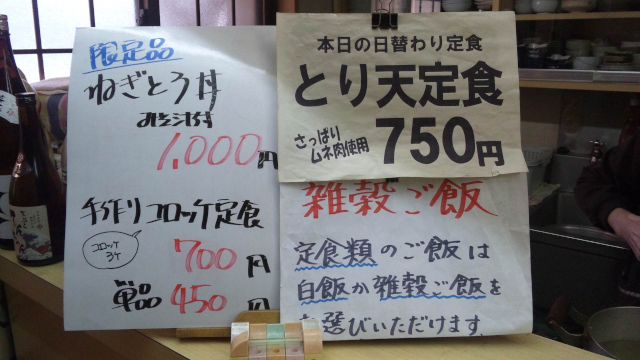 限定品
ねぎとろ丼
みそ汁付
1,000円
手作りコロッケ定食
コロッケ
3ケ
700円
単品 450円
本日の日替わり定食
とり天定食
さっぱり
ムネ肉使用
750円
雑穀ご飯
定食類のご飯は
白飯か雑穀ご飯を
選びいただけます